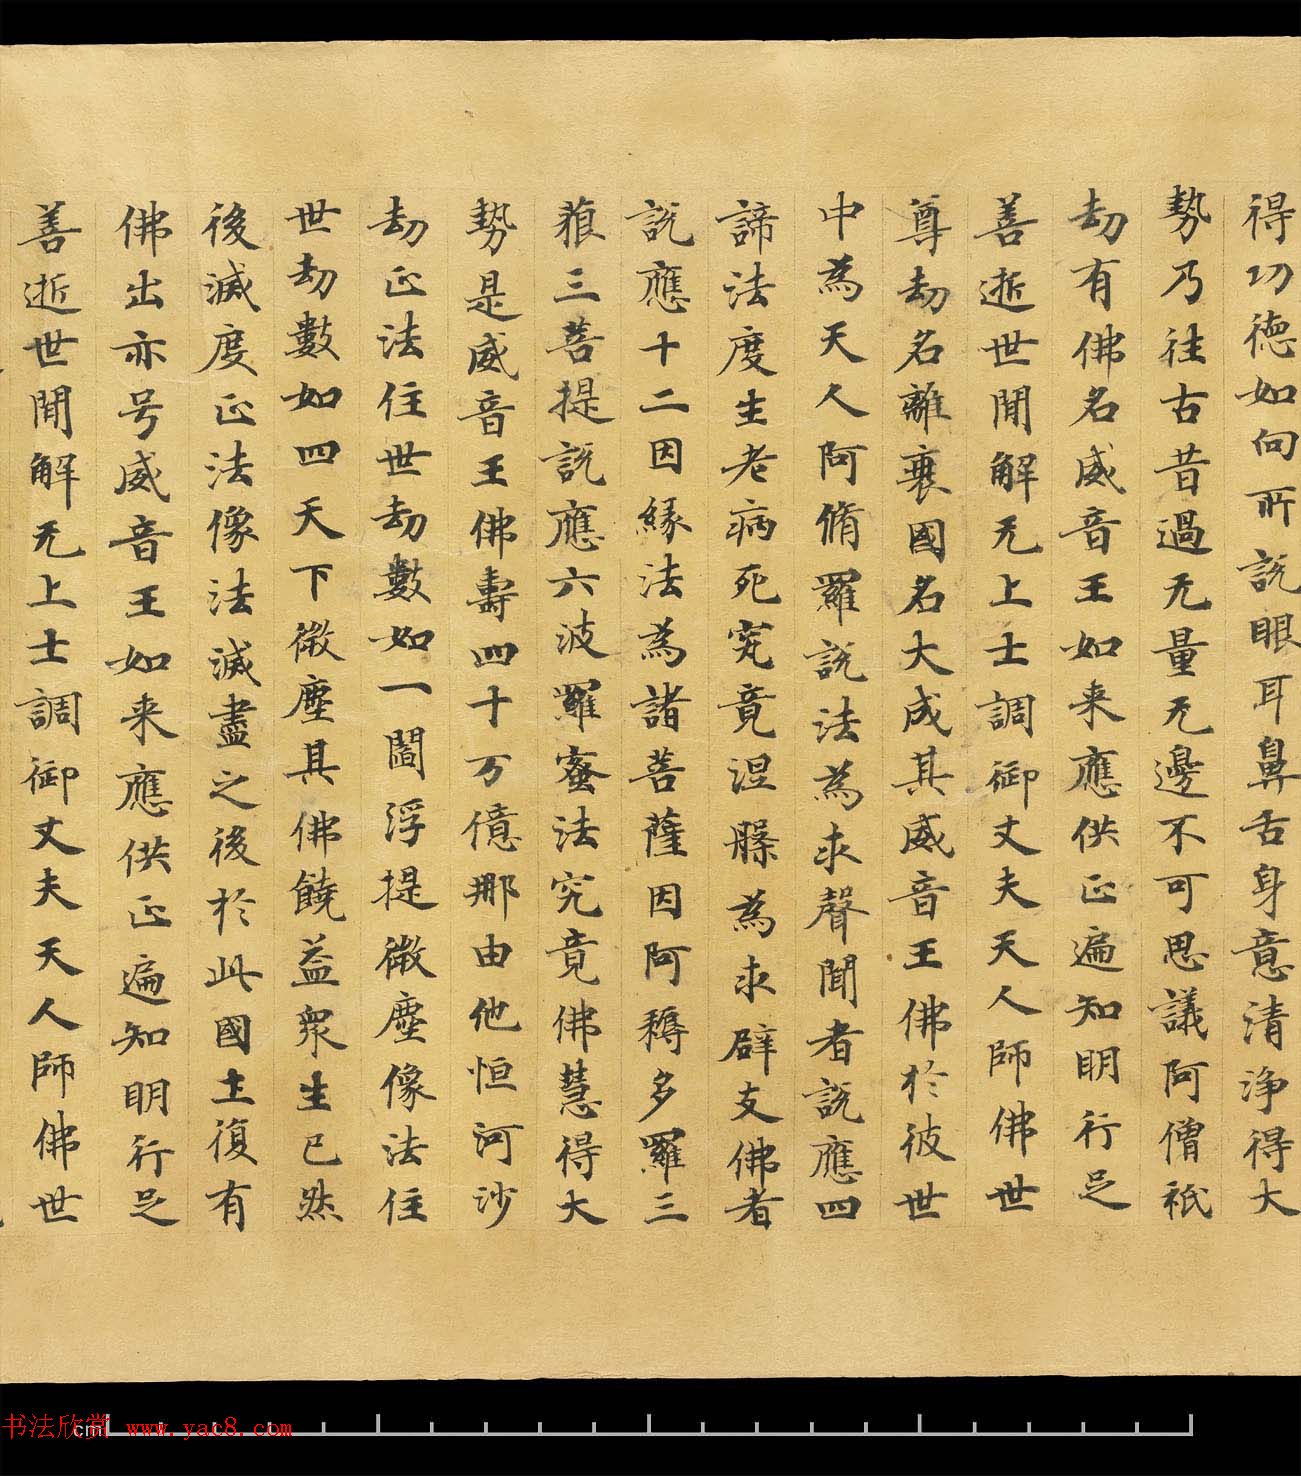 得功德如向所說眼耳鼻舌身意清淨得大
勢乃往古昔過无量无邊不可思議阿僧祇
劫有佛名威音王如来應供正遍知明行足
善逝世間解无上士調御丈夫天人師佛世
尊劫名離衰國名大成其威音王佛於彼世
中為天人阿脩羅說法為求聲聞者說應四
諦法度生老病死究竟涅槃為求辟支佛者
說應十二因緣法為諸菩薩因阿耨多羅三
藐三菩提說應六波羅蜜法究竟佛慧得大
勢是威音王佛壽四十万億那由他恒河沙
劫正法住世劫數如一閻浮提微塵像法住
世劫數如四天下微塵其佛饒益衆生已然
後滅度正法像法滅盡之後於此國土復有
佛出亦号威音王如来應供正遍知明行足
善逝世間解无上士調御丈夫天人師佛世
书法欣赏 www.yac8.com
cm